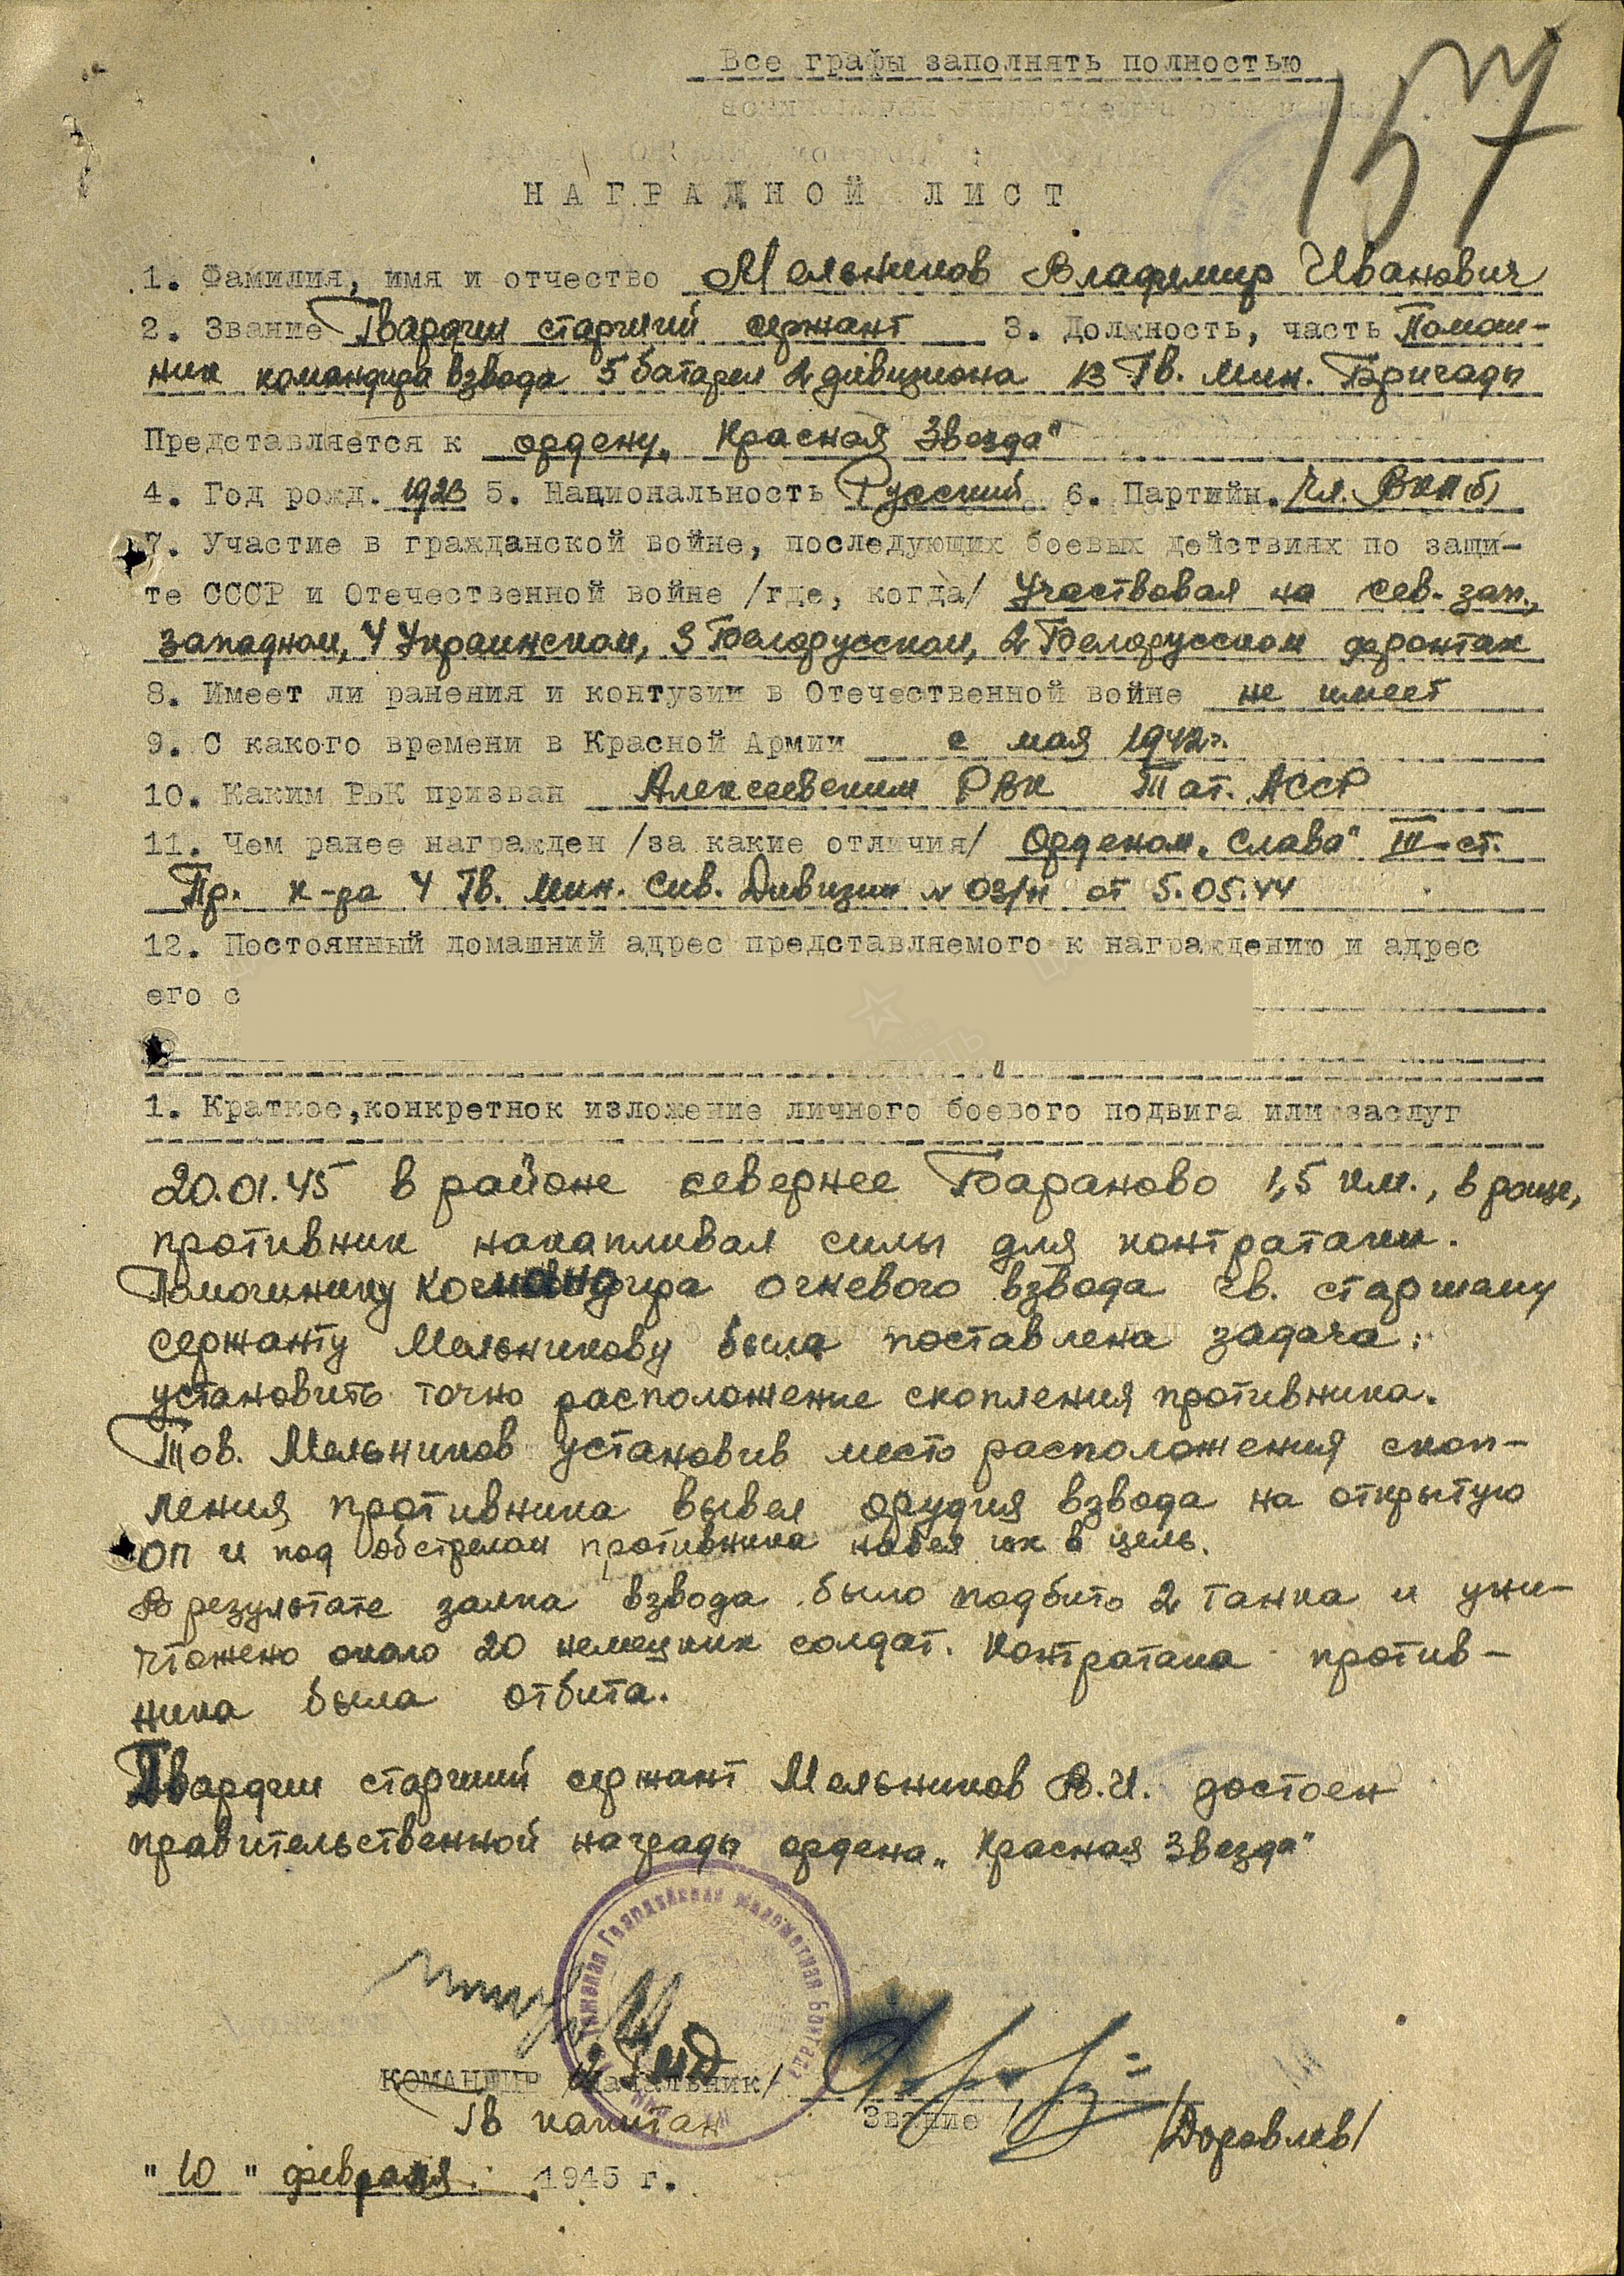 Все графы заполнять полностью
157
НАГРАДНОЙ ЛИСТ
1. Фамилия, имя и отчество Мельников Владимир Иванович
2. Звание Гвардии старший сержант 3. Должность, часть Помощ-
ник командира взвода 5 батареи 2 дивизиона 13 Гв. Мин. Бригады
Представляется к ордену „Красная Звезда"
4. Год рожд. 1923 5. Национальность Русский 6. Партийн. Чл. ВКП(б)
7. Участие в гражданской войне, последующих боевых действиях по защи-
те СССР и Отечественной войне /где, когда/ Участвовал на сев. зап.,
западном, 4 Украинском, 3 Белорусском, 2 Белорусском фронтах
8. Имеет ли ранения и контузии в Отечественной войне не имеет
9. С какого времени в Красной Армии с мая 1942 г.
10. Каким РВК призван Алексеевским РВК Тат. АССР
11. Чем ранее награжден /за какие отличия/ Орденом „Слава" III ст.
Пр. к-ра 4 Гв. Мин. Дивизии № 03/н от 5.05.44
12. Постоянный домашний адрес представляемого к награждению и адрес
его с
1. Краткое,конкретнок изложение личного боевого подвига или заслуг
20.01.45 в районе севернее Бараново 1,5 км., в роще,
противник накапливал силы для контратаки.
Помощнику командира огневого взвода гв. старшему
сержанту Мельникову была поставлена задача:
установить точно расположение скопления противника.
Тов. Мельников установив место расположения скоп-
ления противника вывел орудия взвода на открытую
ОП и под обстрелом противника навел их в цель.
В результате залпа взвода было подбито 2 танка и уни-
чтожено около 20 немецких солдат. Контратака против-
ника была отбита.
Гвардии старший сержант Мельников В.И. достоен
правительственной награды ордена „Красная Звезда"
Гвардейская Минометная Бригада
КОМАНДИР /Начальник/
Гв капитан Звание /Доровлев/
"10" февраля 1945 г.